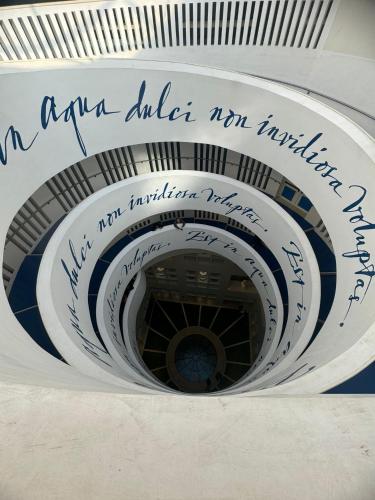 in aqua dulci non invidiosa voluptas.
aqua dulci non invidiosa voluptas. Est in a
dulci non invidiosa voluptas. Est in aqua dulci